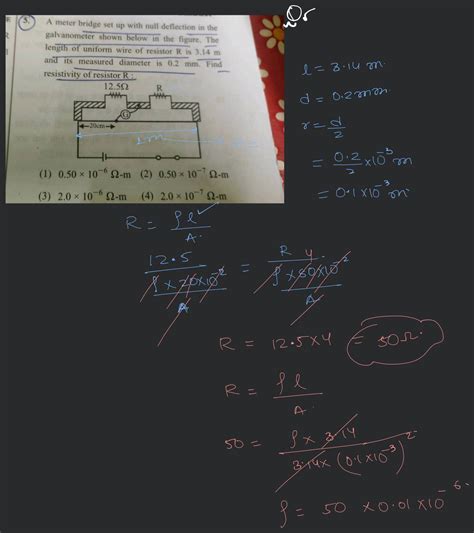 Qr
5. A meter bridge set up with null deflection in the
galvanometer shown below in the figure. The
length of uniform wire of resistor R is 3.14 m
and its measured diameter is 0.2 mm. Find
resistivity of resistor R :
12.5Ω R
G
20cm
1m
(1) 0.50 × 10⁻⁶ Ω-m (2) 0.50 × 10⁻⁷ Ω-m
(3) 2.0 × 10⁻⁶ Ω-m (4) 2.0 × 10⁻⁷ Ω-m
l = 3.14 m.
d = 0.2 mm.
r = d/2
= 0.2/2 × 10⁻³ m
= 0.1 × 10⁻³ m.
R = ρl/A.
12.5/(ρ × 20 × 10⁻²/A) = R/(ρ × 80 × 10⁻²/A) 4
R = 12.5 × 4 = 50 Ω.
R = ρl/A.
50 = ρ × 3.14/(3.14 × (0.1 × 10⁻³)²)
ρ = 50 × 0.01 × 10⁻⁶.